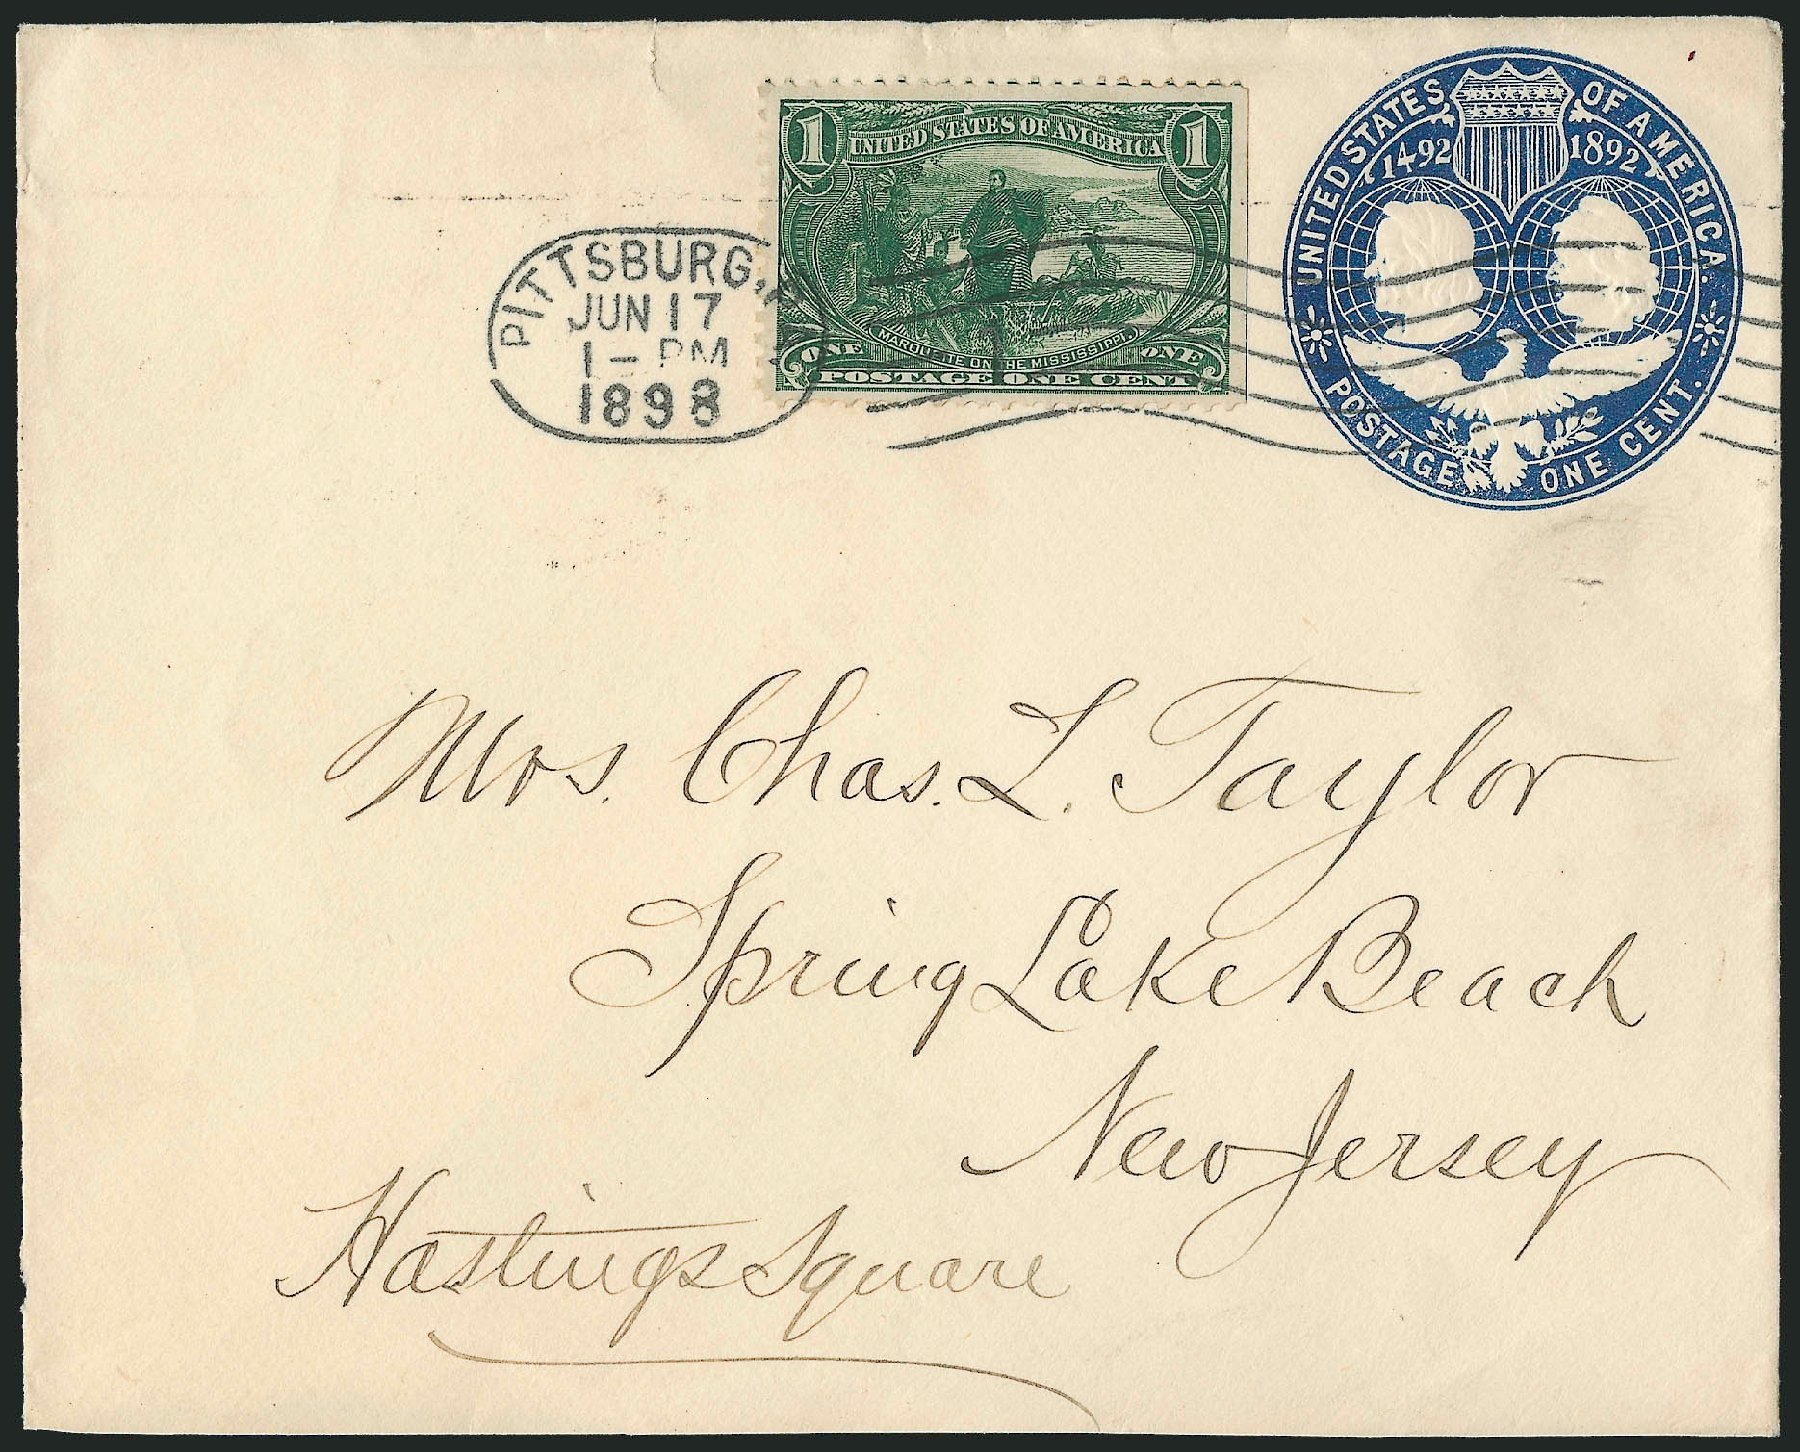 PITTSBURG,
JUN 17
1 - PM
1898
1 UNITED STATES OF AMERICA 1
MARQUETTE ON THE MISSISSIPPI.
ONE ONE
POSTAGE ONE CENT
UNITED STATES OF AMERICA.
1492 1892
POSTAGE ONE CENT.
Mrs. Chas. L. Taylor
Spring Lake Beach
New Jersey
Hastings Square